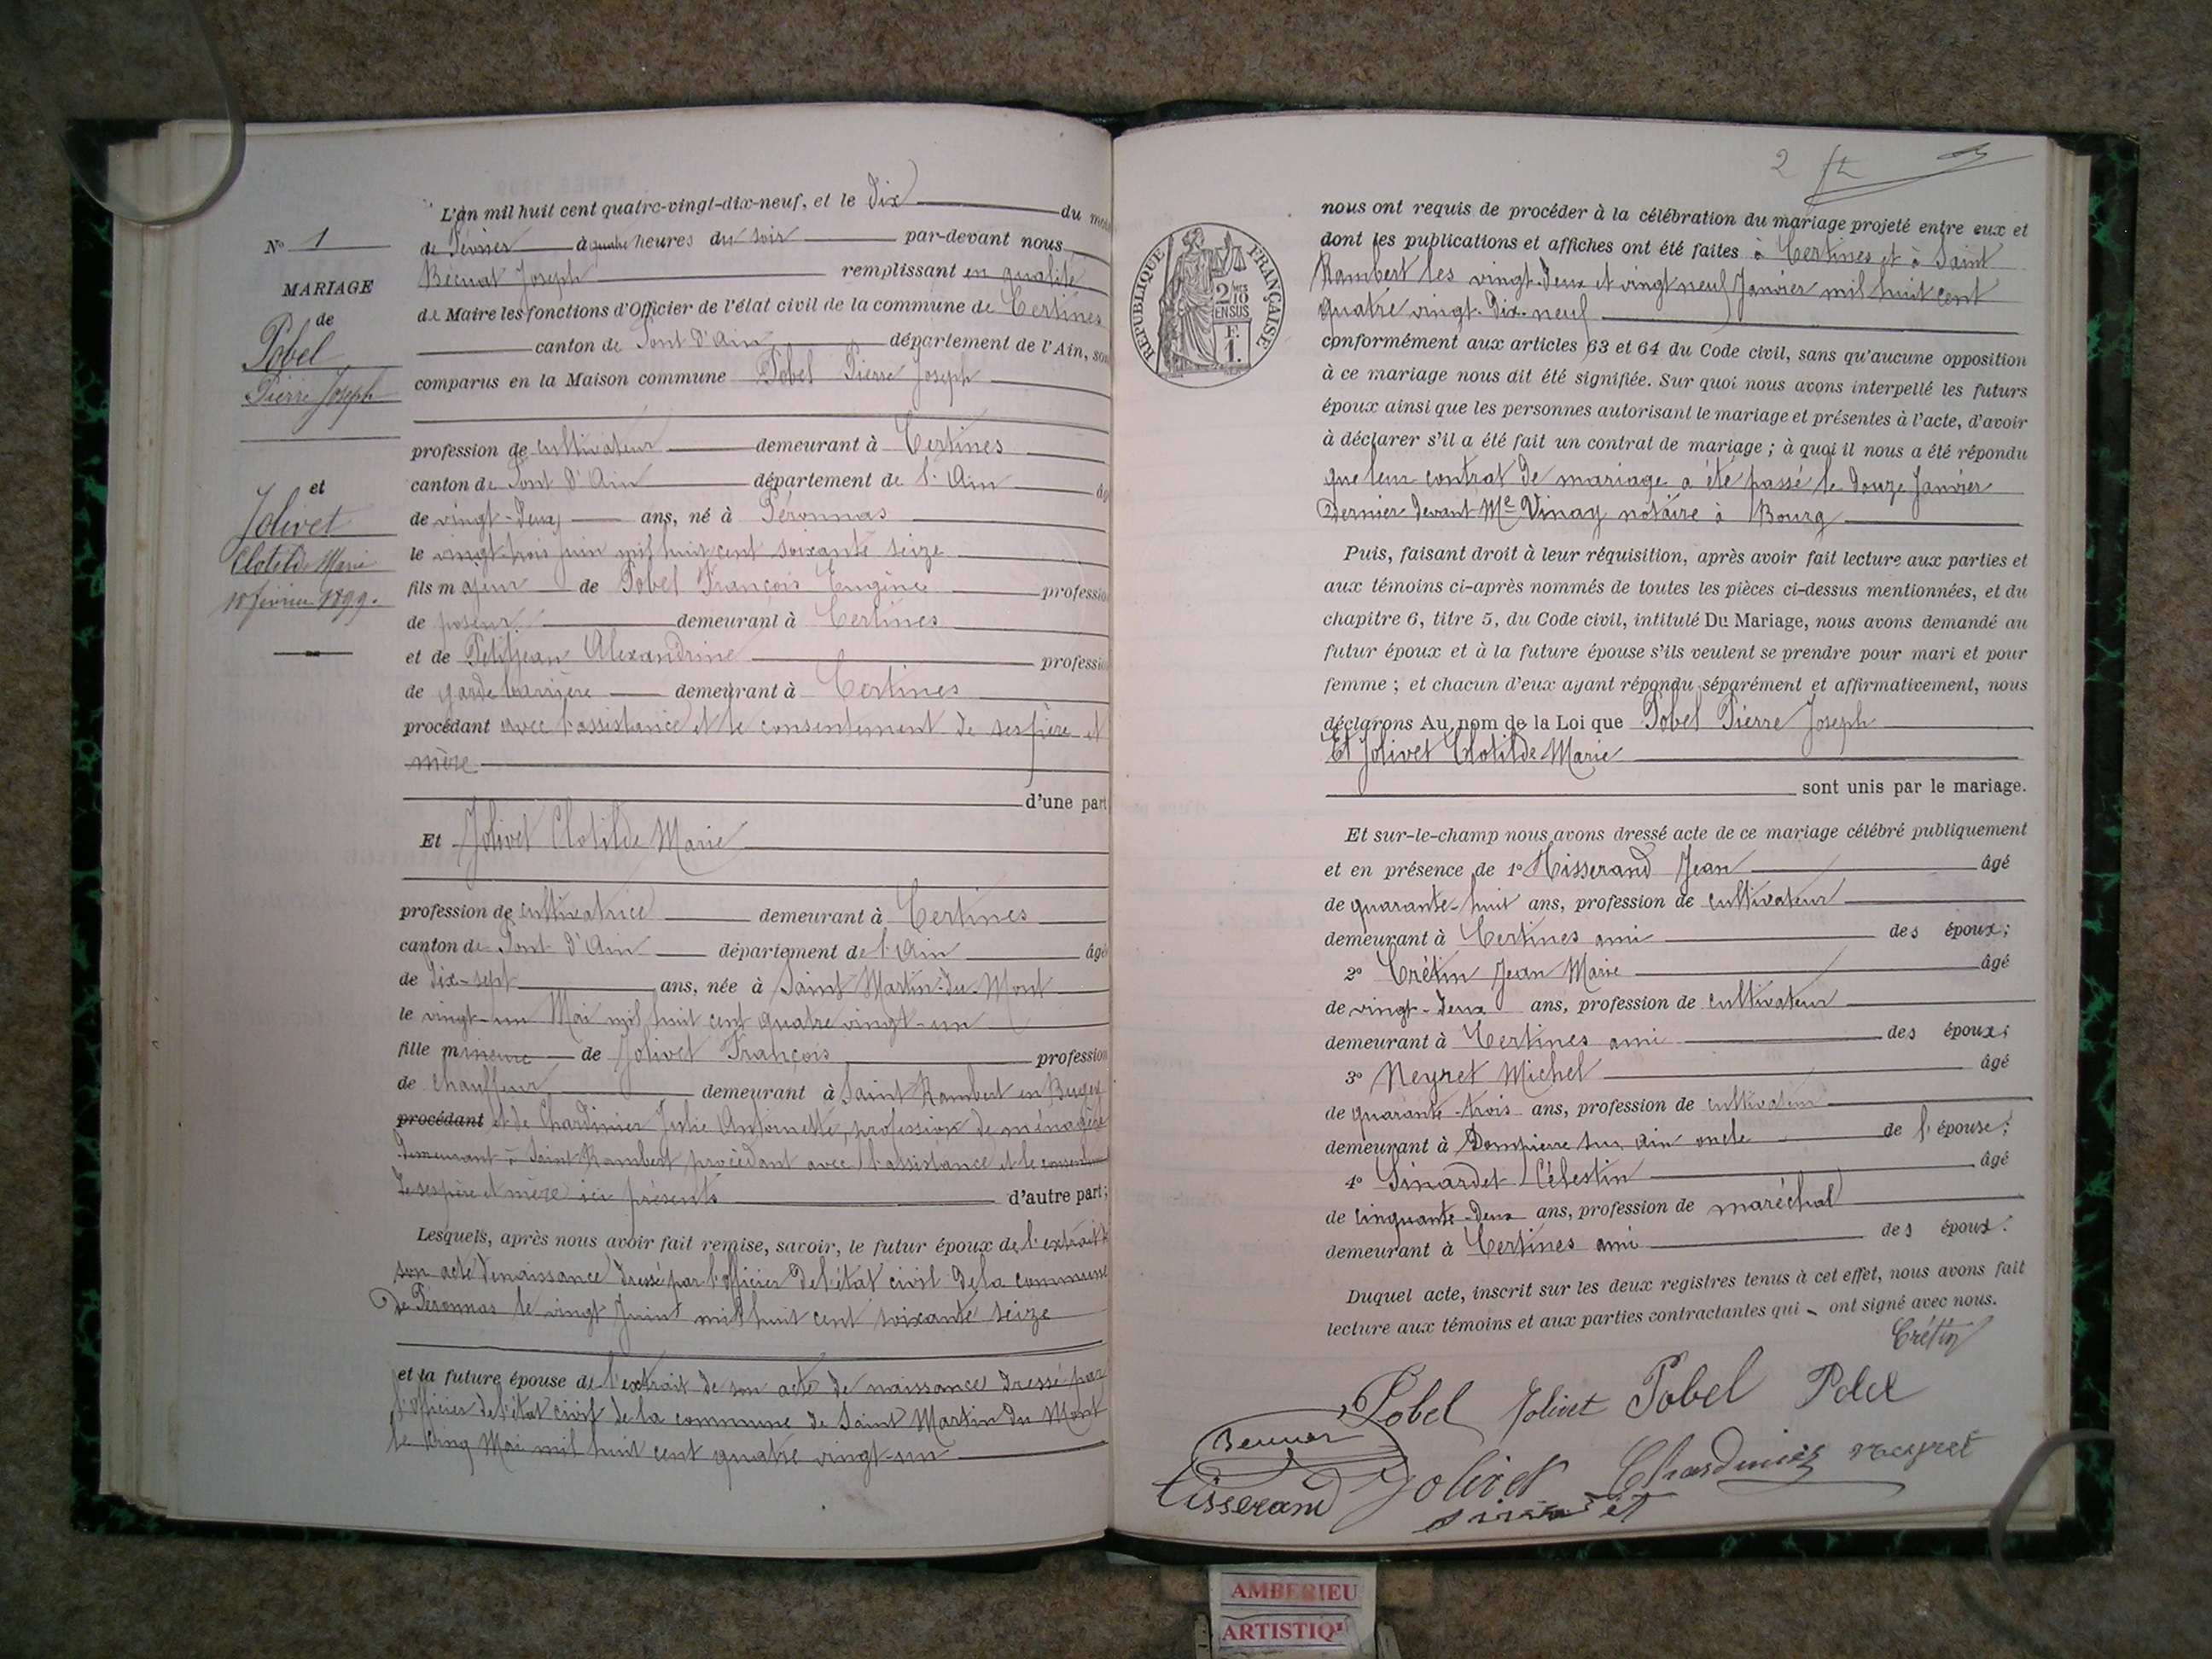 N° 1
MARIAGE
de
Pobel
Pierre Joseph
et
Jolivet
Clotilde Marie
10 février 1899.
L'an mil huit cent quatre-vingt-dix-neuf, et le dix du mois
de Février à quatre heures du soir par-devant nous
Joseph remplissant en qualité
de Maire les fonctions d'Officier de l'état civil de la commune de Certines
canton de Pont d'Ain département de l'Ain, son
comparus en la Maison commune Pobel Pierre Joseph
profession de cultivateur demeurant à Certines
canton de Pont d'Ain département de l'Ain âg
de vingt-deux ans, né à Péronnas
le vingt-trois juin mil huit cent soixante seize
fils majeur de Pobel François Eugène professio
de poseur demeurant à Certines
et de Petitjean Alexandrine professio
de garde barrière demeurant à Certines
procédant avec l'assistance et le consentement de ses père et
mère
d'une part
Et Jolivet Clotilde Marie
profession de cultivatrice demeurant à Certines
canton de Pont d'Ain département de l'Ain âgé
de dix-sept ans, née à Saint Martin-du-Mont
le vingt-un Mai mil huit cent quatre vingt-un
fille mineure de Jolivet François profession
de chauffeur demeurant à Saint Rambert en Bugey
procédant et de Chardinier Julie Antoinette, profession de ménagère
demeurant à Saint Rambert procédant avec l'assistance et le consentement
de ses père et mère ici présents d'autre part;
Lesquels, après nous avoir fait remise, savoir, le futur époux de l'extrait de
son acte de naissance dressé par l'officier de l'état civil de la commune
de Péronnas le vingt Juin mil huit cent soixante seize
et la future épouse de l'extrait de son acte de naissance dressé par
l'officier de l'état civil de la commune de Saint Martin du Mont
le Mai mil huit cent quatre vingt-un
2
RÉPUBLIQUE FRANÇAISE
2 10
EN SUS
F.
1.
nous ont requis de procéder à la célébration du mariage projeté entre eux et
dont les publications et affiches ont été faites à Certines et à Saint
Rambert les vingt-deux et vingt neuf Janvier mil huit cent
quatre vingt-dix-neuf
conformément aux articles 63 et 64 du Code civil, sans qu'aucune opposition
à ce mariage nous ait été signifiée. Sur quoi nous avons interpellé les futurs
époux ainsi que les personnes autorisant le mariage et présentes à l'acte, d'avoir
à déclarer s'il a été fait un contrat de mariage; à quoi il nous a été répondu
que leur contrat de mariage a été passé le douze Janvier
dernier devant Me Vinay notaire à Bourg
Puis, faisant droit à leur réquisition, après avoir fait lecture aux parties et
aux témoins ci-après nommés de toutes les pièces ci-dessus mentionnées, et du
chapitre 6, titre 5, du Code civil, intitulé Du Mariage, nous avons demandé au
futur époux et à la future épouse s'ils veulent se prendre pour mari et pour
femme; et chacun d'eux ayant répondu séparément et affirmativement, nous
déclarons Au nom de la Loi que Pobel Pierre Joseph
Et Jolivet Clotilde Marie
sont unis par le mariage.
Et sur-le-champ nous avons dressé acte de ce mariage célébré publiquement
et en présence de 1° Tisserand Jean âgé
de quarante-huit ans, profession de cultivateur
demeurant à Certines ami des époux;
2° Crétin Jean Marie âgé
de vingt-deux ans, profession de cultivateur
demeurant à Certines ami des époux;
3° Neyret Michel âgé
de quarante-trois ans, profession de cultivateur
demeurant à Dompierre sur Ain oncle de l'épouse;
4° Sinardet Célestin âgé
de cinquante-deux ans, profession de maréchal
demeurant à Certines ami des époux.
Duquel acte, inscrit sur les deux registres tenus à cet effet, nous avons fait
lecture aux témoins et aux parties contractantes qui ont signé avec nous.
Crétin
Pobel Jolivet Pobel
Jolivet Chardinier Neyret
Tisserand
AMBERIEU
ARTISTIQ